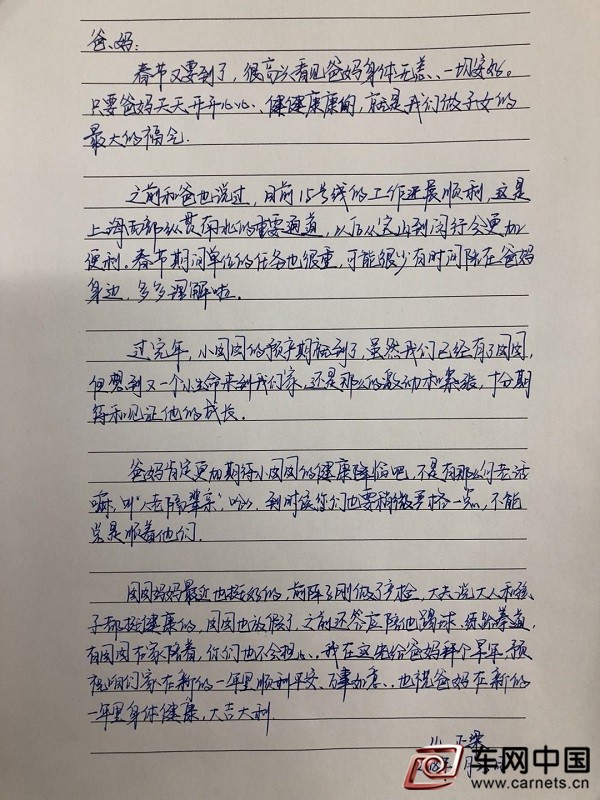 爸、妈:
春节又要到了，很高兴看见爸妈身体无恙、一切安好。
只要爸妈天天开开心心、健健康康的，就是我们做子女的
最大的福气.
之前和爸也说过，目前15号线的工作进展顺利，这是
上海西部纵贯南北的重要通道，以后从宝山到闵行会更加
便利。春节期间单位的任务也很重，可能很少有时间陪在爸妈
身边，多多理解啦。
过完年，小囡囡的预产期就到了，虽然我们已经有了囡囡，
但想到又一个小生命来到我们家，还是那么的激动和紧张，十分期
待和见证他的成长。
爸妈肯定更加期待小囡囡的健康降临吧，不是有那么句老话
嘛，叫"人老隔辈亲"，哈哈，到时候您们也要稍微严格一点，不能
总是顺着他们.
囡囡妈妈最近也挺好的，前阵子刚做了产检，大夫说大人和孩
子都挺健康的，囡囡也放假了，之前还答应陪他踢球、练跆拳道，
有囡囡在家陪着，你们也不会担心，我在这先给爸妈拜个早年，预
祝咱们家在新的一年里顺利平安、万事如意、也祝爸妈在新的
一年里身体健康，大吉大利.
车网中国
www.carnets.cn